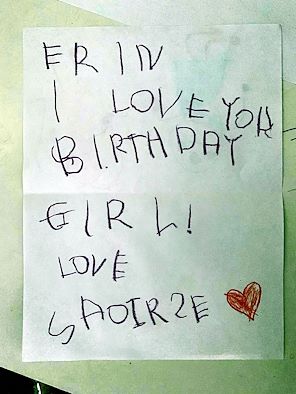 ERIN
I LOVE YOU
BIRTHDAY
GIRL!
LOVE
SAOIRSE